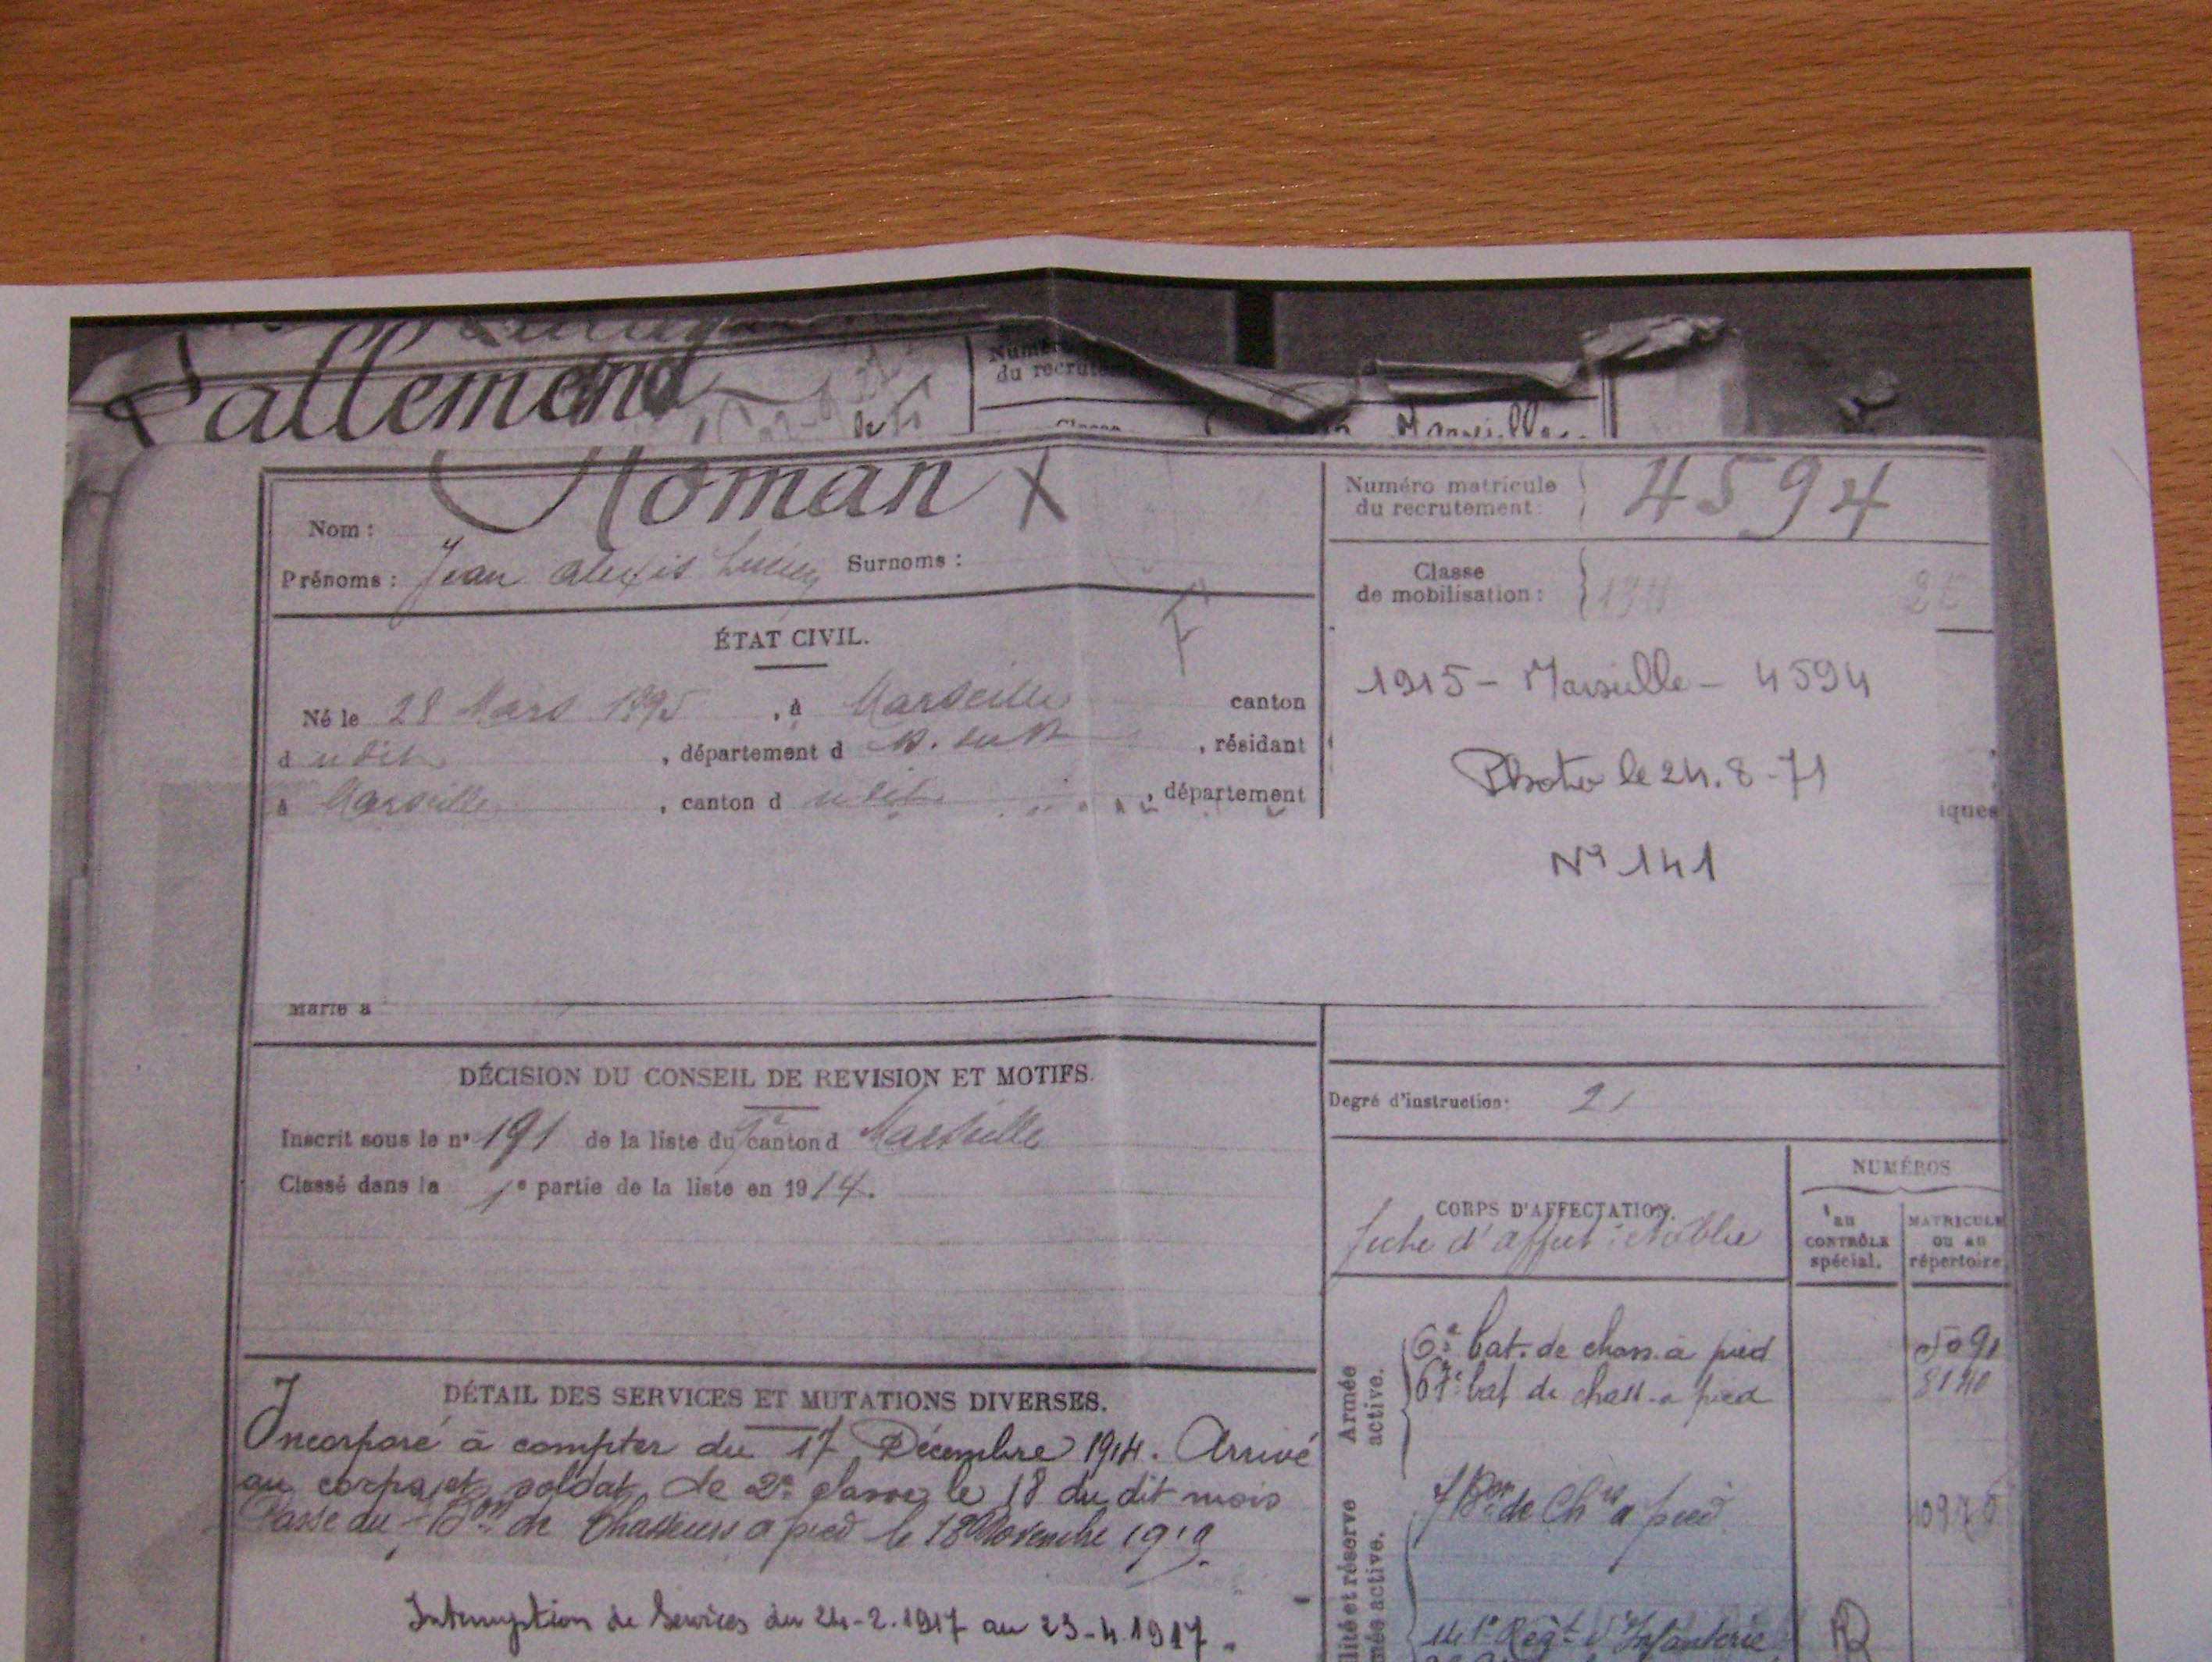 Lallemand
Numéro
du recrutement
Marseille.
Nom : Roman X
Prénoms : Jean Alexis Lucien Surnoms :
Numéro matricule
du recrutement : 4594
Classe
de mobilisation :
ÉTAT CIVIL.
F
Né le 28 Mars 1895, à Marseille canton
d udit, département d B. du R, résidant
à Marseille, canton d udit, département
1915 - Marseille - 4594
Photo le 24.8-71
iques
N° 141
Marié à
DÉCISION DU CONSEIL DE REVISION ET MOTIFS.
Inscrit sous le n° 191 de la liste du canton d Marseille
Classé dans la 1e partie de la liste en 1914.
Degré d'instruction : 2
CORPS D'AFFECTATION.
fiche d'affect établie
NUMÉROS
au
CONTRÔLE
spécial.
MATRICULE
ou au
répertoire.
Armée
active.
6e bat. de chass. à pied 5091
67e bat de chass. a pied 8140
7 Bon de Chrs a pied
141e Regt d'Infanterie
DÉTAIL DES SERVICES ET MUTATIONS DIVERSES.
Incorporé à compter du 17 Décembre 1914. Arrivé
au corps et soldat de 2e classe le 18 du dit mois
Passé au 7 Bon de Chasseurs a pied le 18 Novembre 1919.
Interruption de Services du 24-2.1917 au 23-4.1917.